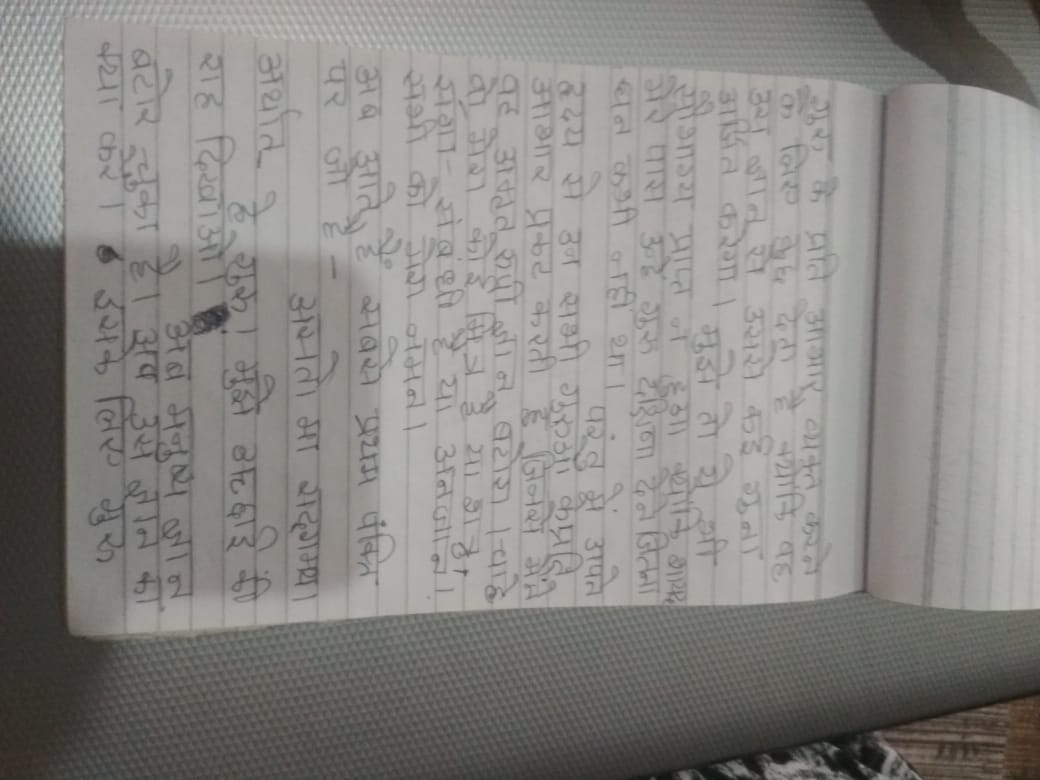 गुरु के प्रति आभार व्यक्त करने
के लिए छूट देता है क्योंकि वह
उस ज्ञान से उससे कई गुना
अर्जित करेगा। मुझे तो ये भी
सौभाग्य प्राप्त न हुआ क्योंकि मेरे
पास उन्हें गुरु दक्षिणा देने जितना
धन कभी नही था।
परंतु मैं अपने
हृदय से उन सभी गुरुओं के प्रति
आभार प्रकट करती हूँ जिनसे मैंने
वह अमृत रूपी ज्ञान बटोरा। चाहे
वो मेरा कोई मित्र है या शत्रु
सगा-संबंधी है या अनजान।
सभी को मेरा नमन।
अब आते हैं सबसे प्रथम पंक्ति
पर जो है –
असतो मा सद्गमय।
अर्थात हे गुरु। मुझे सच्चाई की
राह दिखाओ।
अब मनुष्य ज्ञान
बटोर चुका है। अब उस ज्ञान का
क्या करे। इसके लिए गुरु